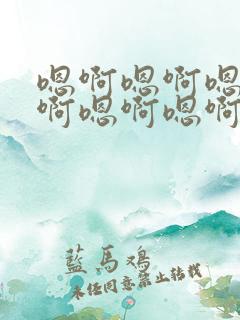 嗯啊嗯啊嗯
啊嗯啊嗯啊
藍馬鸡
未经同意禁止转载